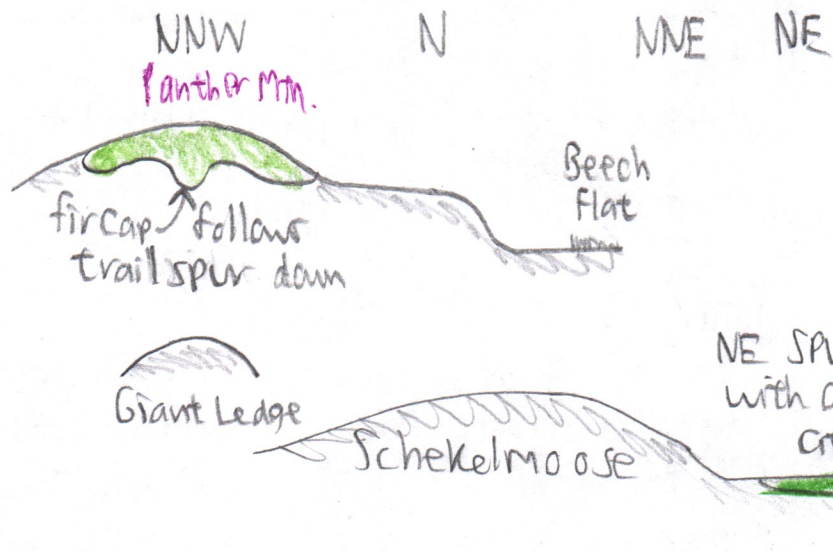 NNW N NNE NE
Panther Mtn.
Beech
Flat
fir cap follows
trail spur down
Giant Ledge
Schekelmoose
NE
with